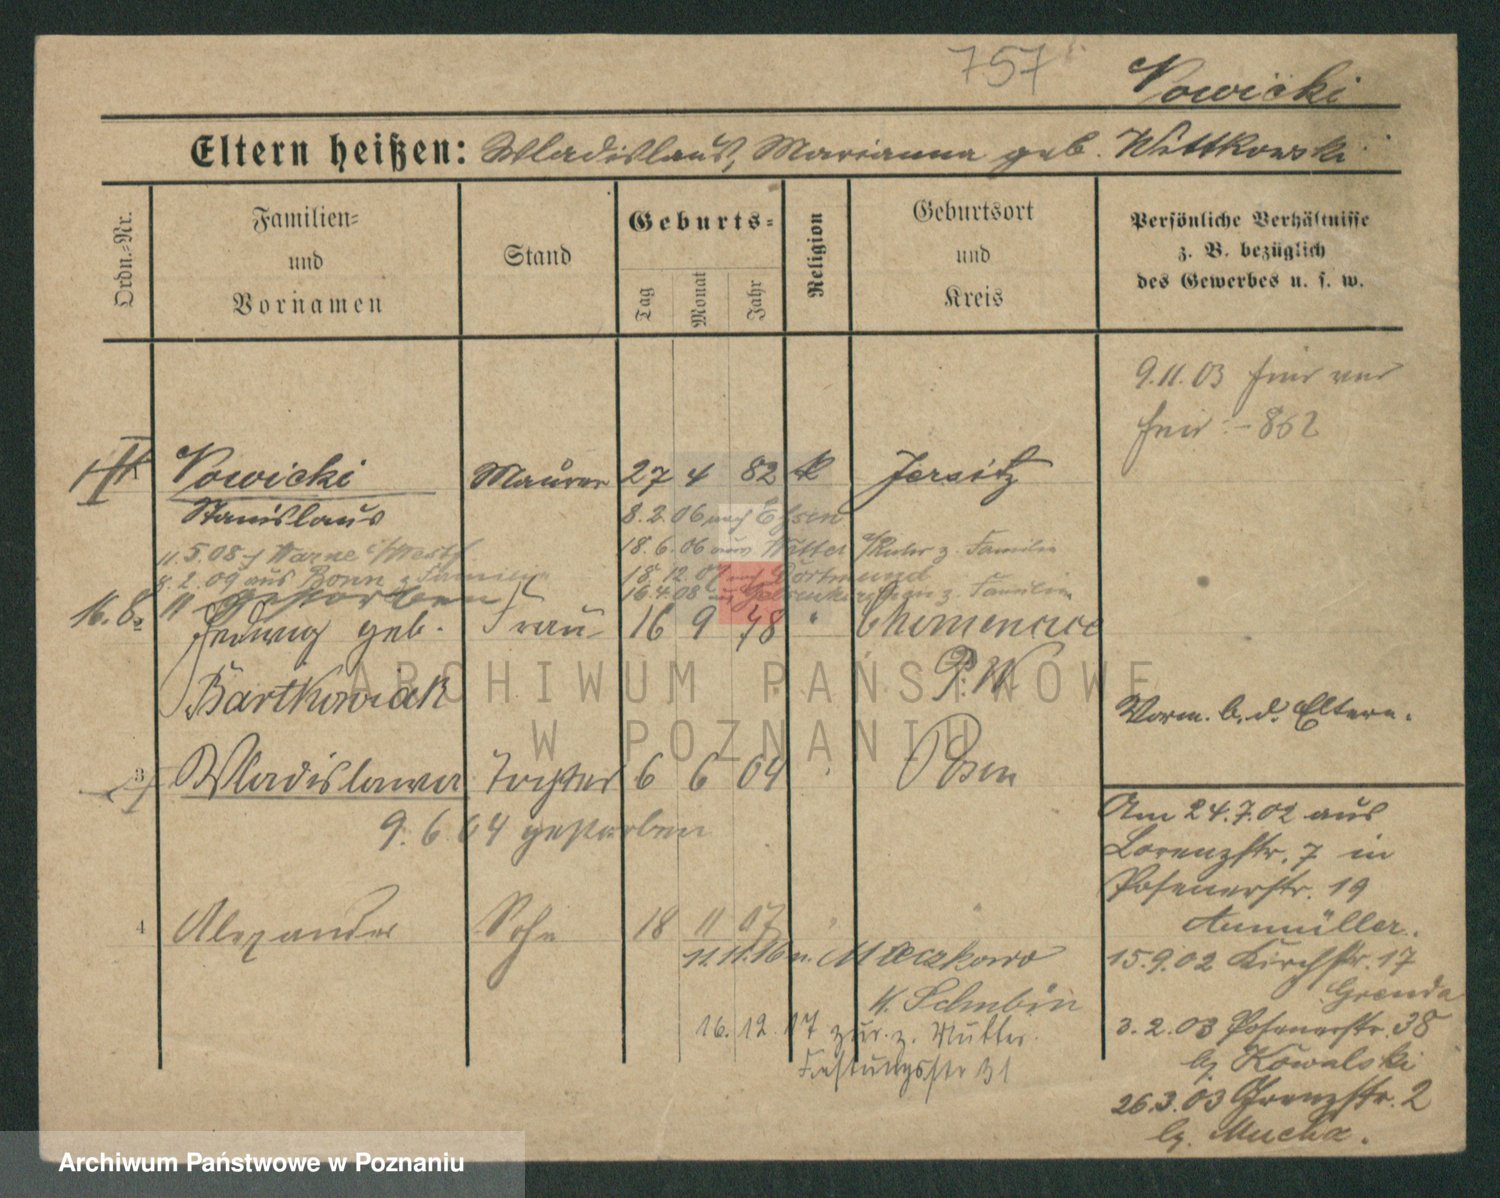 757
Nowicki
Eltern heißen: Wladislaus, Marianna geb. Wittkowski
Ordn.-Nr.
Familien-
und
Vornamen
Stand
Geburts-
Tag
Monat
Jahr
Religion
Geburtsort
und
Kreis
Persönliche Verhältnisse
z. B. bezüglich
des Gewerbes u. s. w.
9.11.03
862
Nowicki Maurer 27 4 82 k Jersitz
Stanislaus
8.2.06 nach Essen
18.6.06 aus Witten Ruhr z. Familie
11.5.08 Warne i/Westf
18.12.07 nach Dortmund
8.2.09 aus Bonn z Familie
16.4.08 aus Gelsenkirchen z. Familie
gestorben
16.8.
Hedwig geb. Frau 16 9 78 "
Bartkowiak
P. W.
Vorm. b. d. Eltern.
3 Wladislawa Tochter 6 6 04 Posen
9.6.04 gestorben
4 Alexander Sohn 18 11 07
11.11.16 n. Maczkowo
K. Schubin
16.12.17 zur. z. Mutter.
Festungsstr 31
Am 24.7.02 aus
Lorenzstr. 7 in
Posenerstr. 19
Aumüller.
15.9.02 Kirchstr. 17
Grenda
3.2.03 Posenerstr. 38
bj Kowalski
26.3.03 Grenzstr. 2
bj. Mucha.
ARCHIWUM PAŃSTWOWE
W POZNANIU
Archiwum Państwowe w Poznaniu